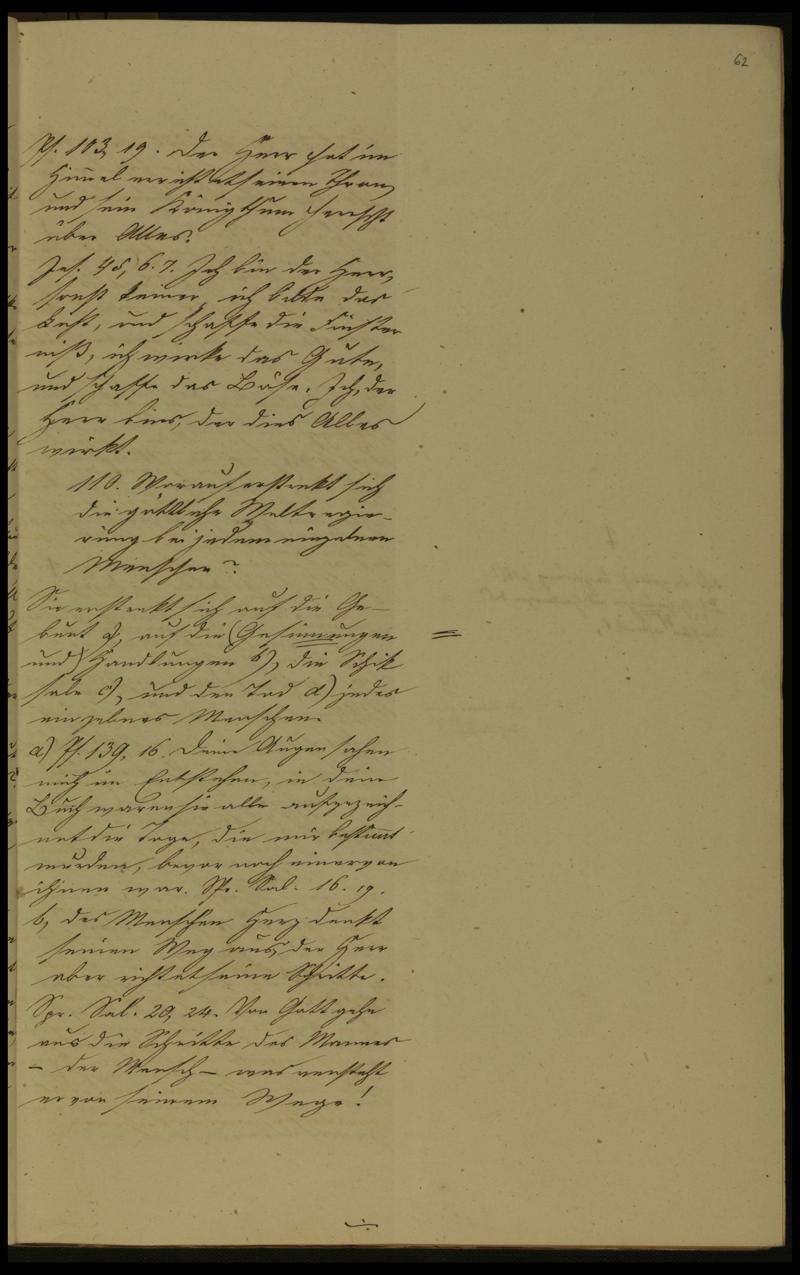 62
Ps. 103, 19. Der Herr hat im
Him̅el errichtet seinen Thron,
und sein Königthum herrscht
über Alles.
Jes. 45, 6. 7. Ich bin der Herr,
sonst keiner, ich bilde das
Licht, und schaffe die Finster
niß, ich wirke das Gute,
und schaffe das Böse. Ich, der
Herr bins, der dies Alles
wirkt.
110. Worauf erstrekt sich
die göttliche Weltregie-
rung bei jedem einzelnen
Menschen?
Sie erstrekt sich auf die Ge-
burt a), auf die (Gesinnungen
und) Handlungen b), die Schik
sale c), und den Tod d) jedes
einzelnes Menschen.
a) Ps. 139, 16. Deine Augen sahen
mich im Entstehen, in dein
Buch waren sie alle aufgezeich-
net die Tage, die mir bestim̅t
wurden, bevor noch einer von
ihnen war. Spr. Sal. 16. 19.
b, des Menschen Herz denkt
seinen Weg aus, der Herr
aber richtet seine Schritte.
Spr. Sal. 20, 24. Von Gott gehe
aus die Schritte des Mannes
– der Mensch – was versteht
er von seinem Wege!